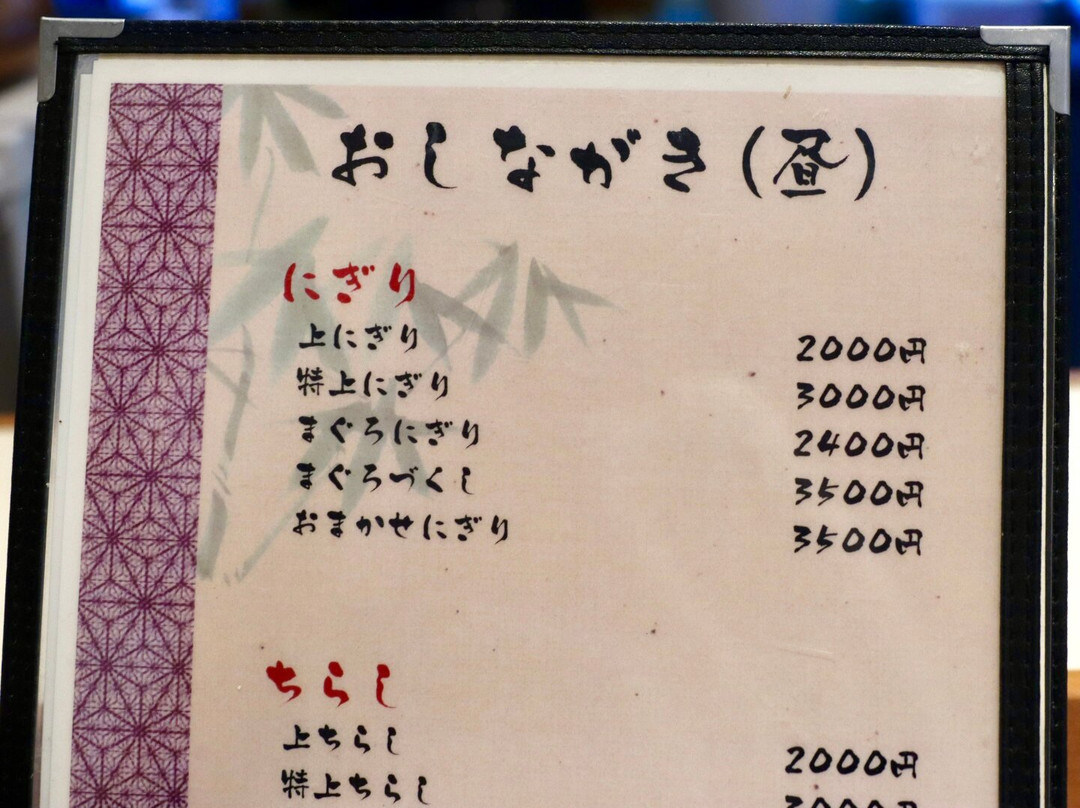 おしながき(昼)
にぎり
上にぎり 2000円
特上にぎり 3000円
まぐろにぎり 2400円
まぐろづくし 3500円
おまかせにぎり 3500円
ちらし
上ちらし 2000円
特上ちらし